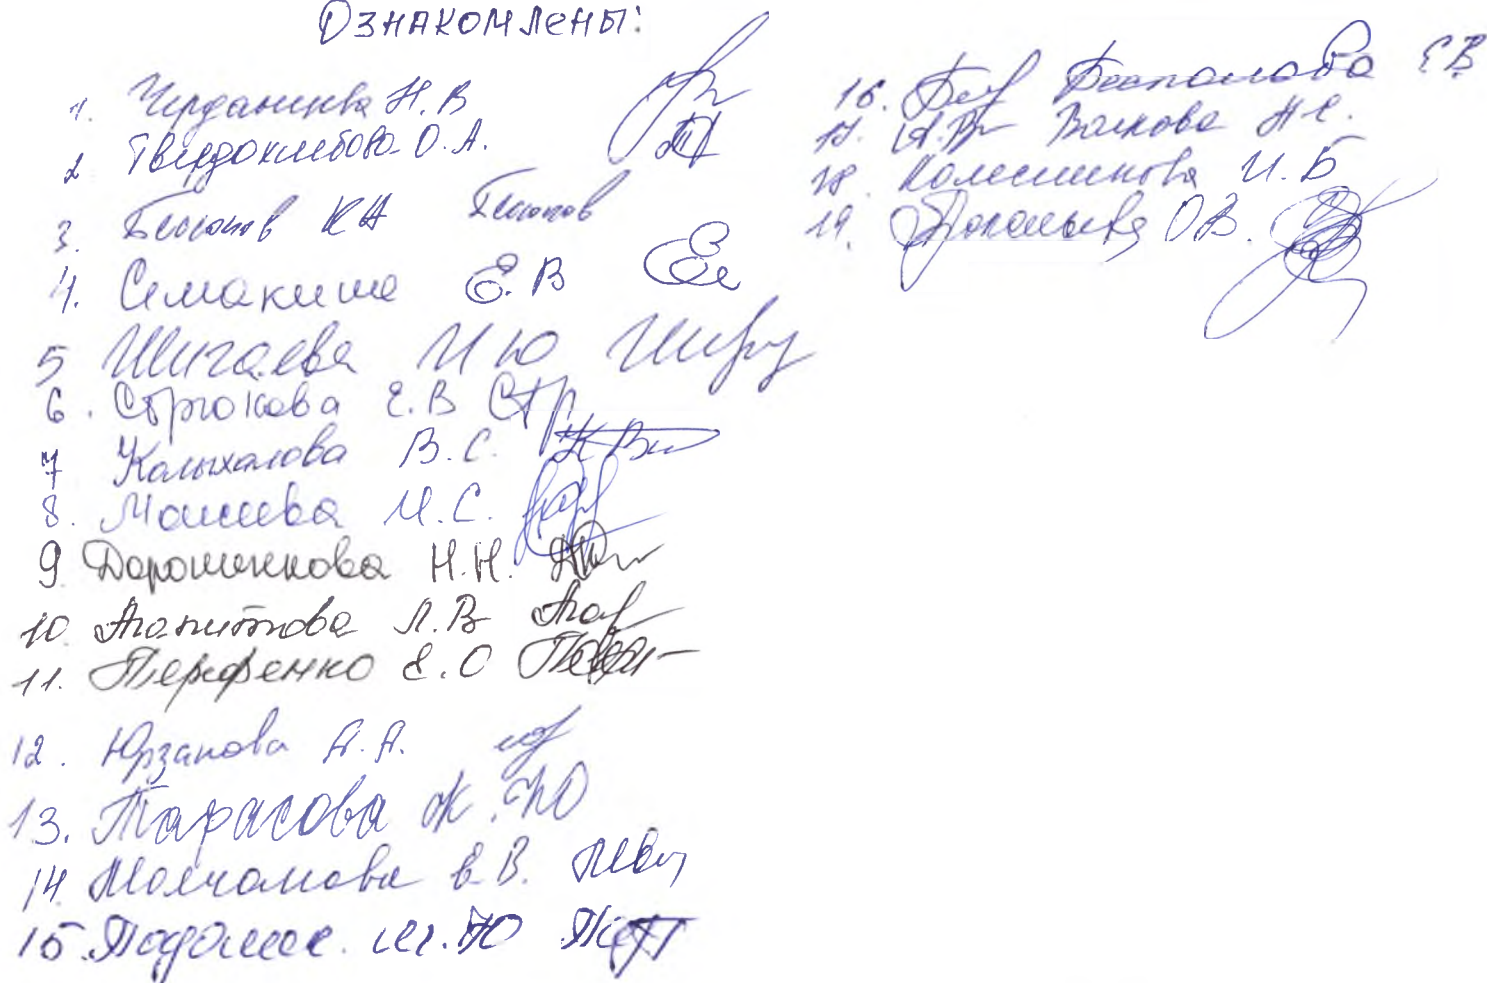 Ознакомлены:
1. Черданцева Н.В
2 Твердохлебова О.А.
3. Беспалов КА
4. Семакина Е.В
5 Шигаева И Ю
6. Строкова Е.В Стр
7 Колыхалова В.С.
8. Моисеева И.С.
9 Дорошенкова Н.Н.
10. Агапитова Л.В
11. Перфенко Е.О
12. Юрзанова А.А.
13. Тарасова Ж.Ю
14. Молчанова В.В.
15. М.Ю
16. Беспалова ЕВ
17. Волкова Н.С.
18. Колесникова И.Б
19. О.В.